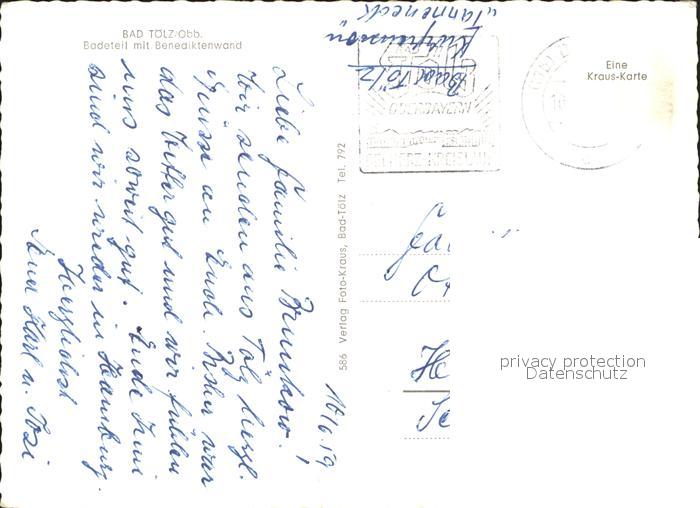 BAD TÖLZ-Obb.
Badeteil mit Benediktenwand
Eine
Kraus-Karte
Bad Tölz
Kurpension
"Tanneneck"
OBERBAYERN
586 Verlag Foto-Kraus, Bad-Tölz Tel. 792
16/6.59
Liebe Familie Brunkow!
Wir senden aus Tölz herzl.
Grüsse an Euch. Bisher war
das Wetter gut und wir fühlen
uns soweit gut. Ende Juni
sind wir wieder in Hamburg.
Herzlichst
Karl u. Tosi
Fa
He
privacy protection
Datenschutz